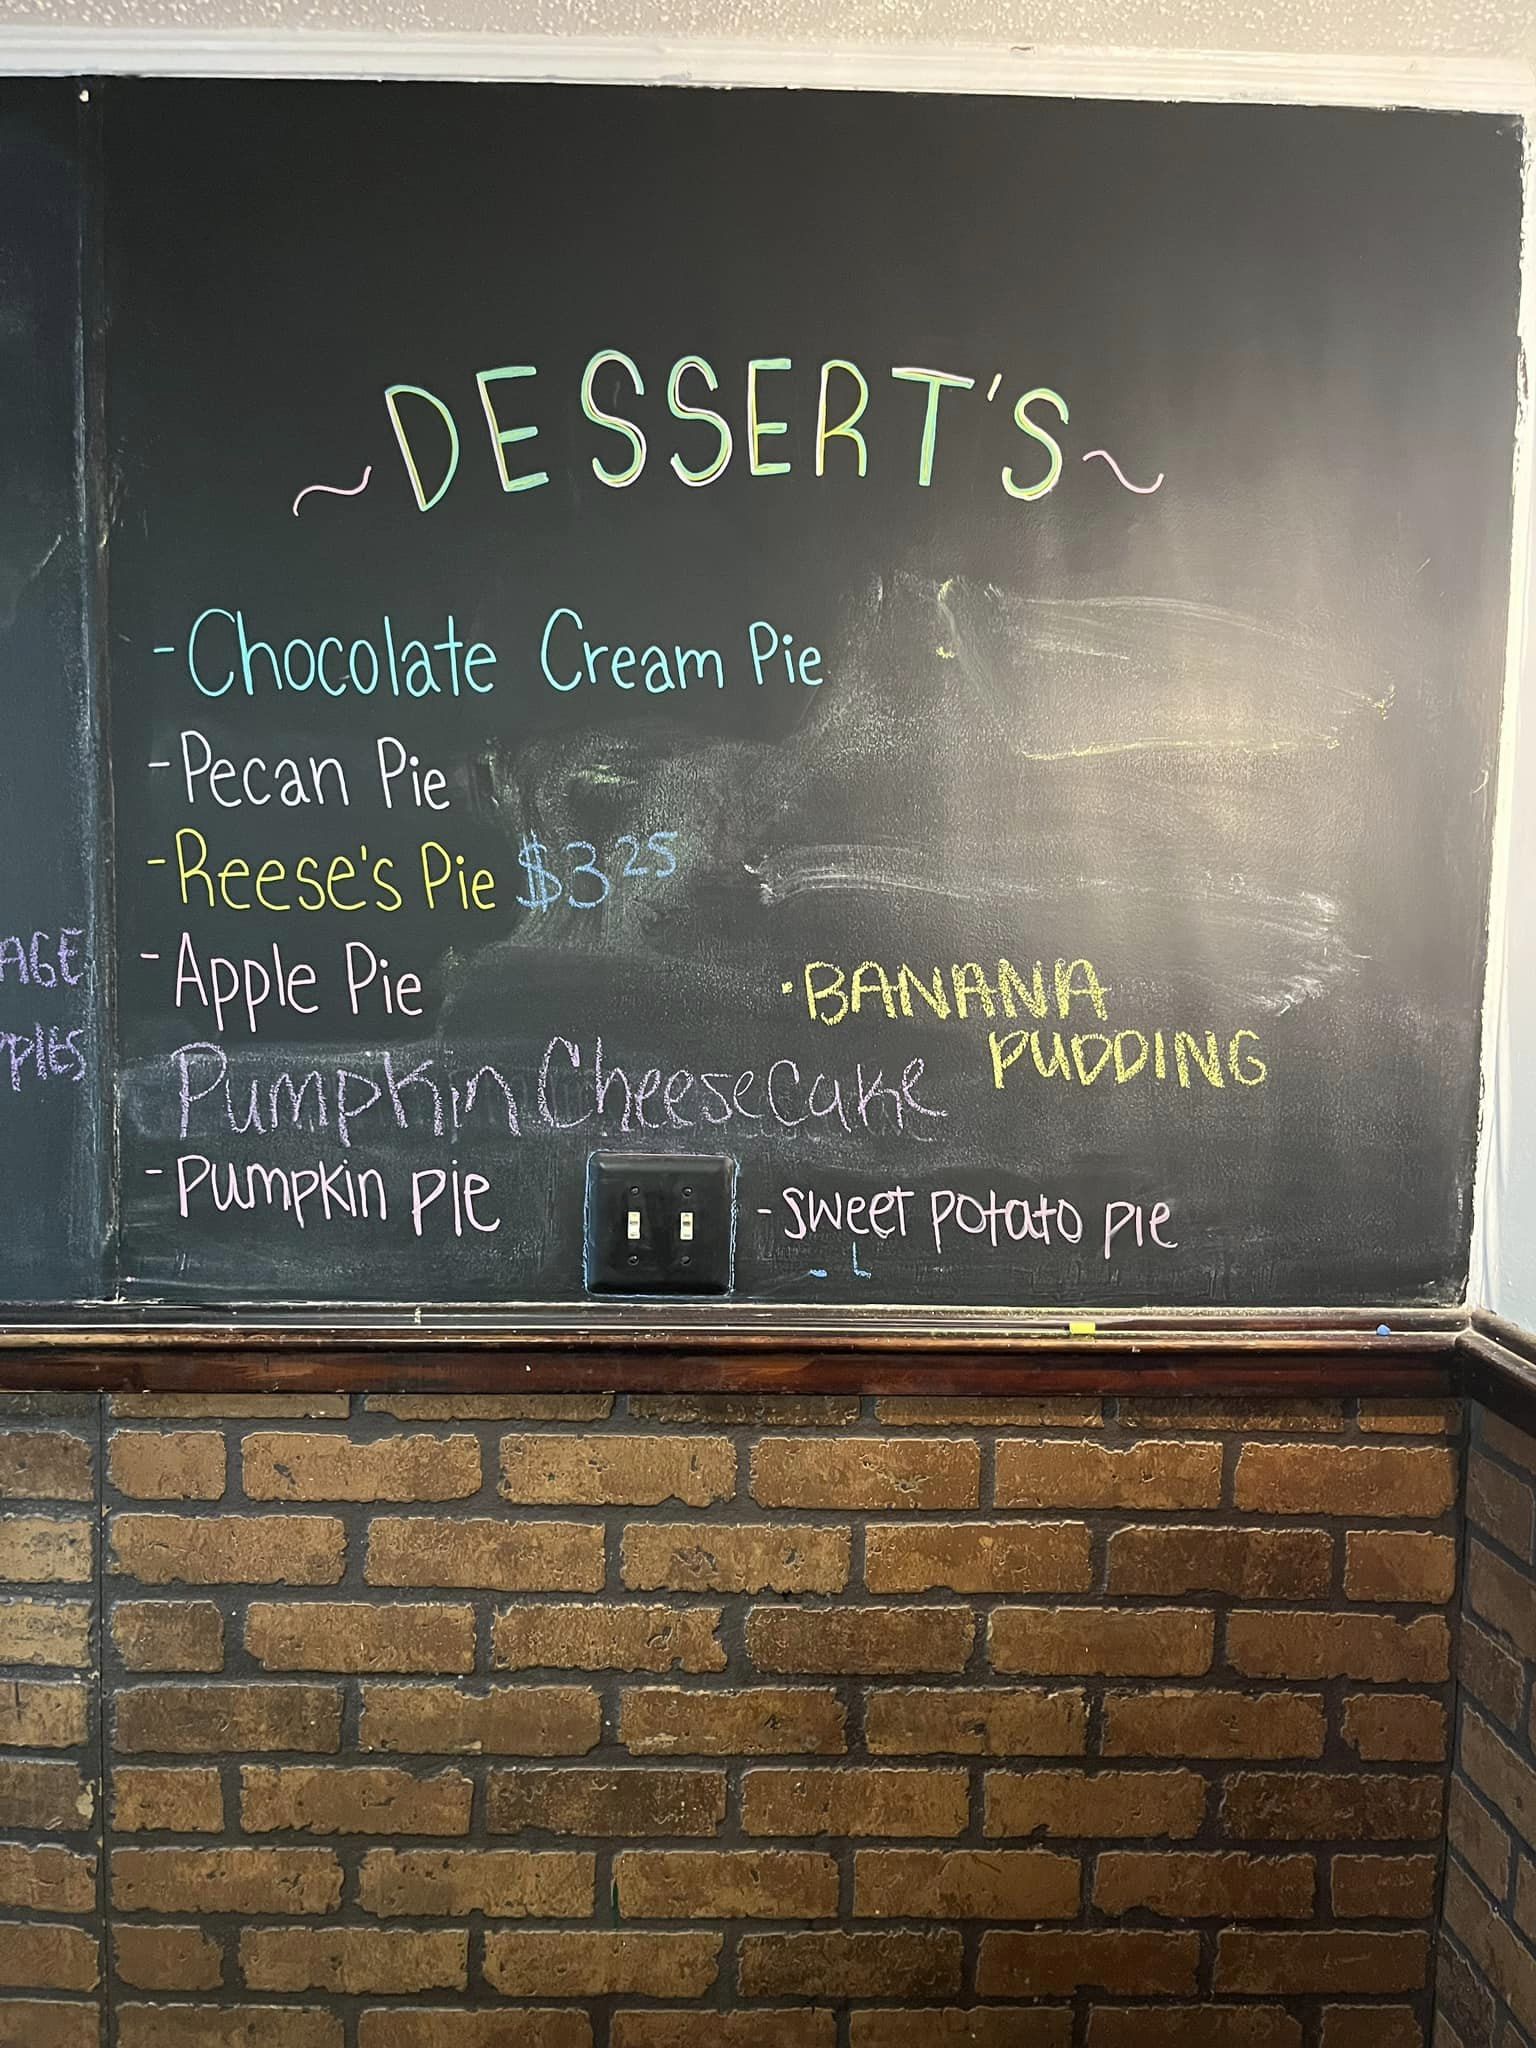 ~DESSERT'S~
-Chocolate Cream Pie
-Pecan Pie
-Reese's Pie $3 25
-Apple Pie
·BANANA
PUDDING
Pumpkin Cheesecake
-Pumpkin Pie
-Sweet Potato Pie